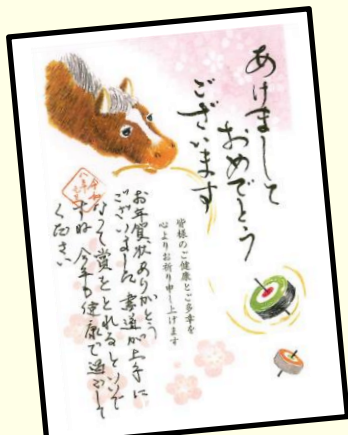 あけまして
おめでとう
ございます
皆様のご健康とご多幸を
心よりお祈り申し上げます
お年賀状ありがとう
ございました 書道が上手に
なって賞をとれるといいで
すね 今年も健康で過ごして
ください